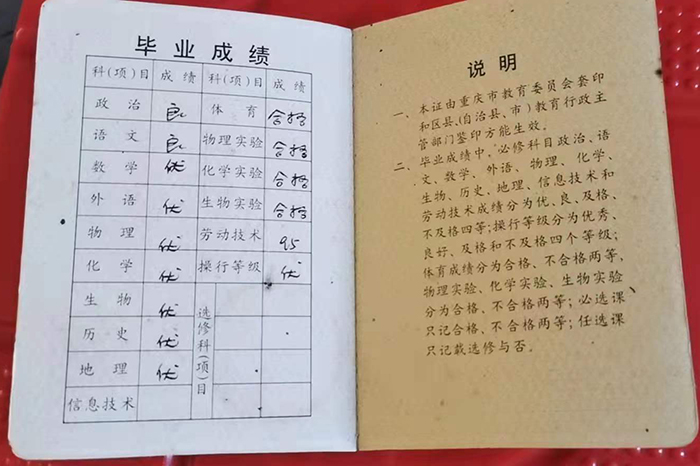 毕业成绩
科(项)目 成绩 科(项)目 成绩
政治 良 体育 合格
语文 良 物理实验 合格
数学 优 化学实验 合格
外语 优 生物实验 合格
物理 优 劳动技术 95
化学 优 操行等级 优
生物 优 选修科(项)目
历史 优
地理 优
信息技术
说明
一、本证由重庆市教育委员会套印
和区县、(自治县、市)教育行政主
管部门鉴印方能生效。
二、毕业成绩中,必修科目政治、语
文、数学、外语、物理、化学、
生物、历史、地理、信息技术和
劳动技术成绩分为优、良、及格、
不及格四等;操行等级分为优秀、
良好、及格和不及格四个等级;
体育成绩分为合格、不合格两等,
物理实验、化学实验、生物实验
分为合格、不合格两等;必选课
只记合格、不合格两等;任选课
只记载选修与否。